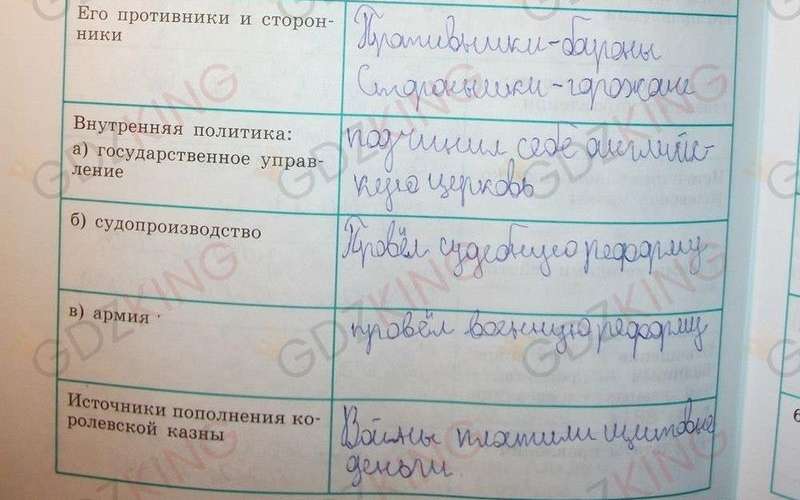 Его противники и сторон-
ники
Противники-бароны
Сторонники-горожане
Внутренняя политика:
а) государственное управ-
ление
подчинил себе английс-
кую церковь
б) судопроизводство
Провёл судебную реформу
в) армия
провёл военную реформу
Источники пополнения ко-
ролевской казны
Войны платили щитовые
деньги.
GDZKING
GDZKING
GDZKING
GDZKING
GDZKING
GDZKING
GDZKING
GDZKING
GDZKING